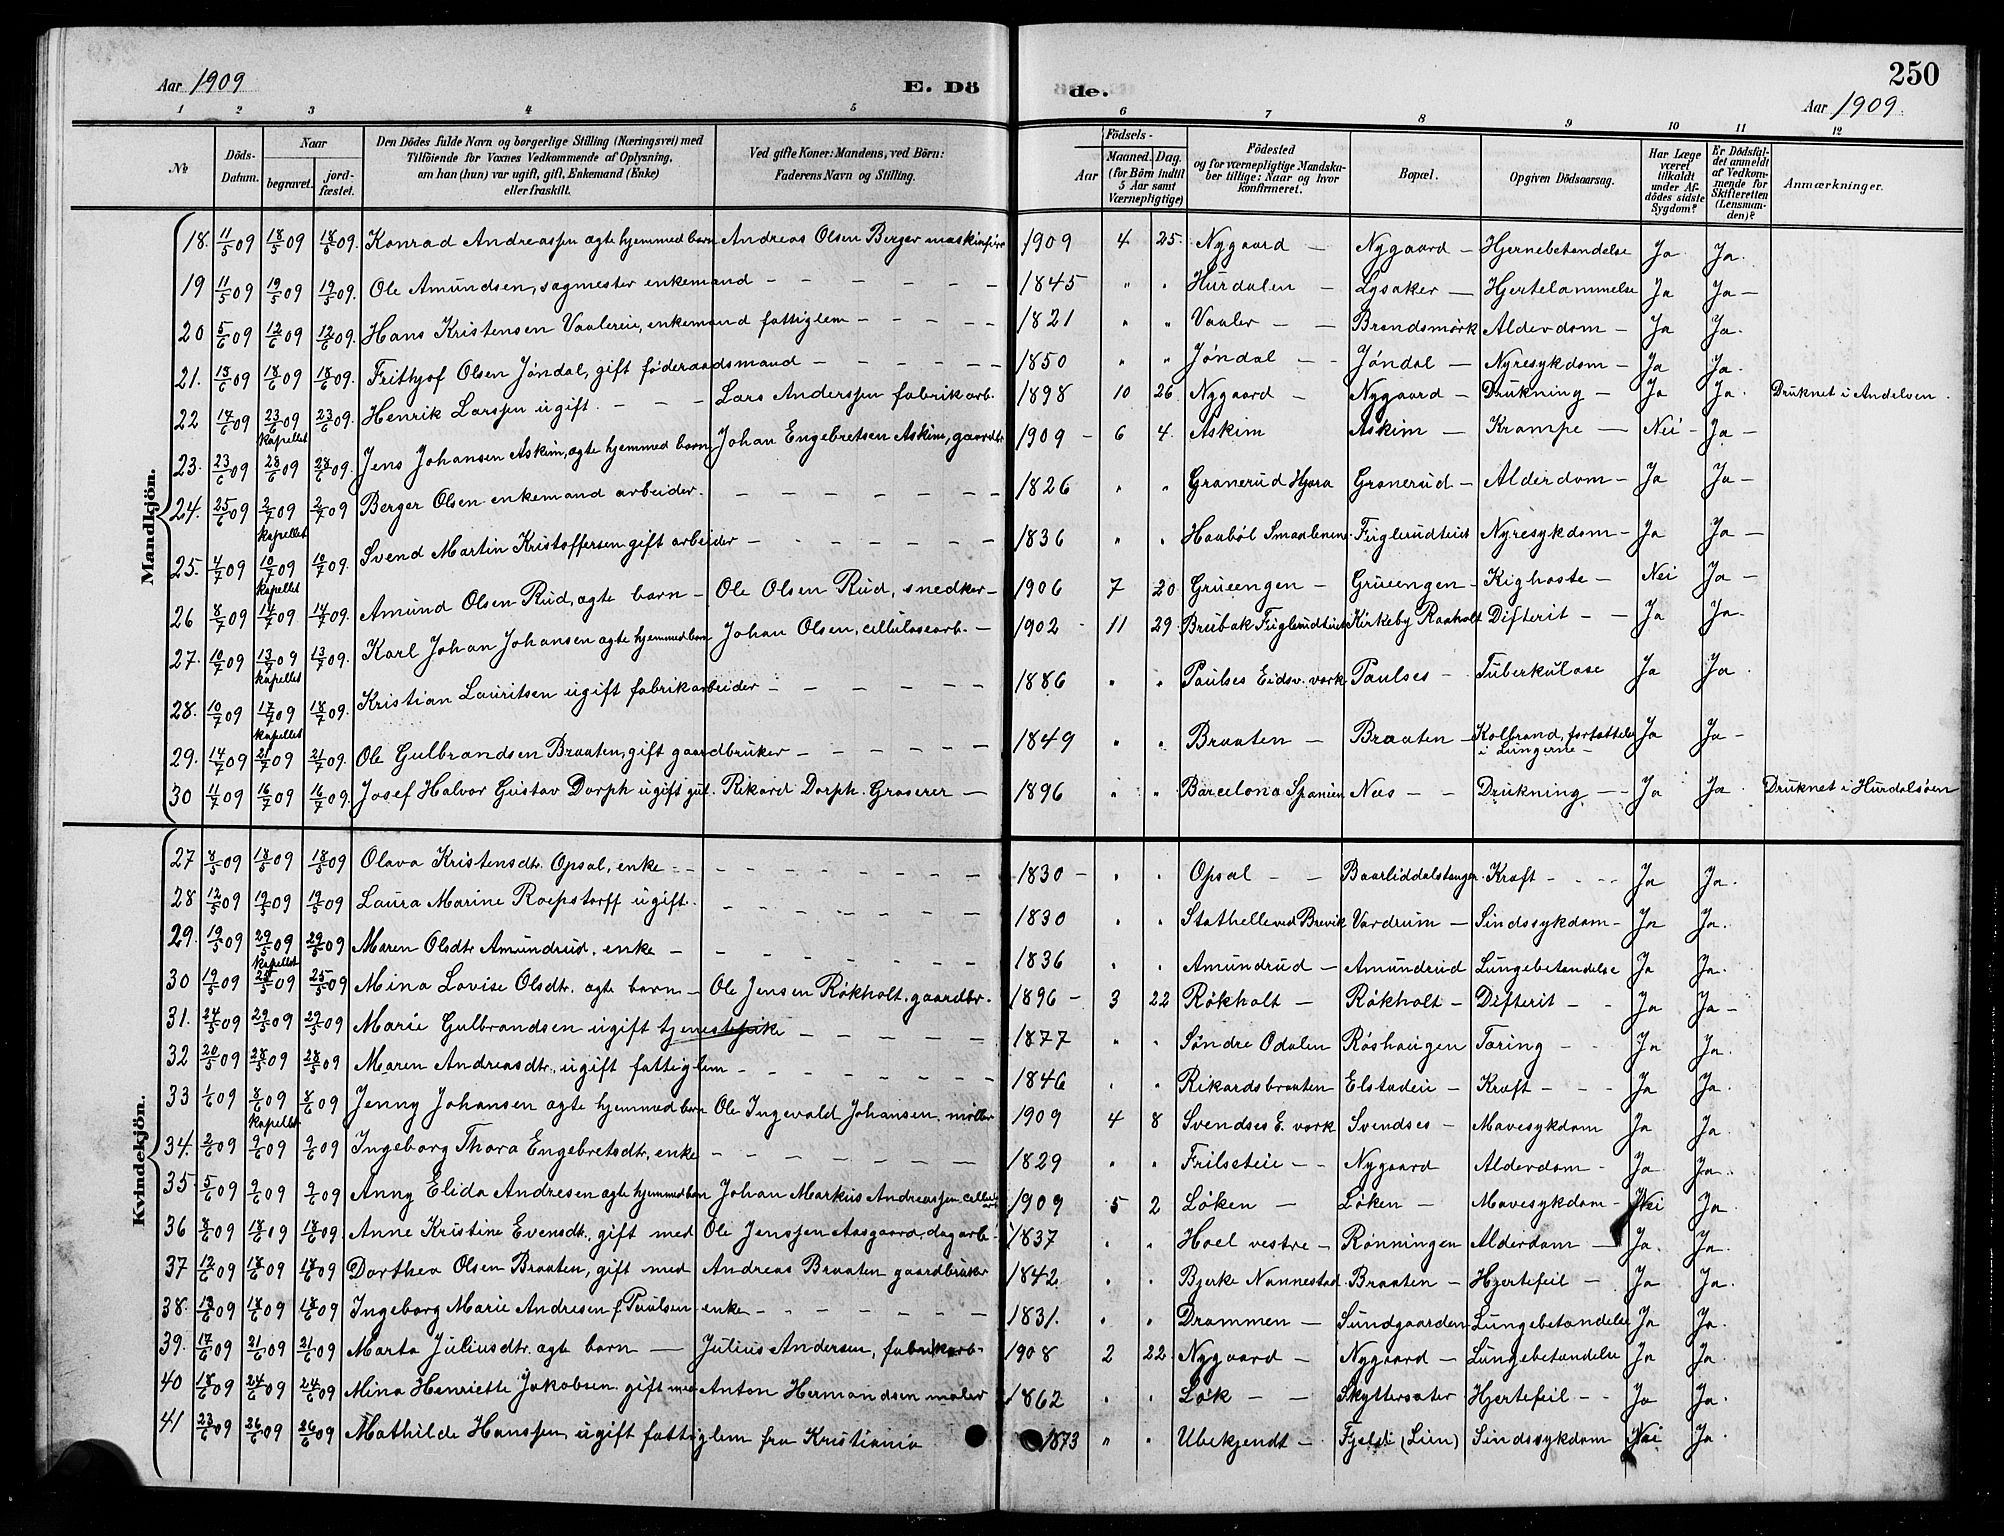 Aar 1909 E. Dö de. 250
Aar 1909.
1 2 3 4 5 6 7 8 9 10 11 12
No
Döds-Datum.
Naar
begravet.
jord-fæstet.
Den Dödes fulde Navn og borgerlige Stilling (Næringsvei) med
Tilföiende for Voxnes Vedkommende af Oplysning,
om han (hun) var ugift, gift, Enkemand (Enke)
eller fraskilt.
Ved gifte Koner: Mandens, ved Börn:
Faderens Navn og Stilling.
Födsels-
Aar
Maaned. Dag.
(for Börn indtil
5 Aar samt
Værnepligtige)
Födested
og for værnepligtige Mandska-
ber tillige: Naar og hvor
konfirmeret.
Bopæl.
Opgiven Dödsaarsag.
Har Læge
været
tilkaldt
under Af-
dödes sidste
Sygdom?
Er Dödsfal-
det anmeldt
af Vedkom-
mende for
Skifteretten
(Lensman-
den)?
Anmærkninger.
Mandkjön.
18. 11/5 09 18/5 09 18/5 09. Konrad Andreassen ægte hjemmed. barn Andreas Olsen Berger maskinfører 1909 4 25. Nygaard – Nygaard – Hjernebetændelse Ja Ja.
19 11/5 09 19/5 09 19/5 09. Ole Amundsen, sagmester enkemand – 1845 " " Hurdalen – Lysaker – Hjertelammelse Ja Ja –
20 5/6 09 12/6 09 12/6 09. Hans Kristensen Vaalereie, enkemand fattiglem – 1821 " " Vaaler – Brandsmörk Alderdom – Ja Ja.
21. 13/6 09 18/6 09 18/6 09. Frithjof Olsen Jøndal, gift føderaadsmand – 1850 " " Jøndal – Jøndal – Nyresykdom – Ja Ja.
22 17/6 09 23/6 09 23/6 09. Henrik Larssen ugift. – Lars Anderssen fabrikarb. 1898 10 26. Nygaard – Nygaard – Drukning – Ja Ja. Druknet i Andelven.
kapellet
23. 23/6 09 28/6 09 28/6 09. Jens Johansen Askim, ægte hjemmed barn Johan Engebretsen Askim, gaardbr 1909 – 6 4. Askim Askim – Krampe – Nei – Ja –
24. 25/6 09 2/7 09 2/7 09 Berger Olsen enkemand arbeider. – 1826 " " Granerud Hjøra Granerud – Alderdom – Ja Ja –
kapellet
25. 4/7 09 10/7 09 10/7 09. Svend Martin Kristoffersen gift arbeider – 1836 " " Haabøl Smaalenene Fuglerudteiet Nyresykdom – Ja Ja –
kapellet
26 8/7 09 14/7 09 14/7 09. Amund Olsen Rud, ægte barn – Ole Olsen Rud, snedker – 1906 7 20. Grueengen – Grueengen – Kighoste – Nei Ja –
27. 10/7 09 13/7 09 13/7 09. Karl Johan Johansen ægte hjemmed barn Johan Olsen, cellulosearb. – 1902 – 11 29. Brubak Fuglerudteiet Kirkeby Raaholt Difterit – Ja Ja.
kapellet
28. 10/7 09 17/7 09 18/7 09. Kristian Lauritsen ugift fabrikarbeider – 1886 " " Paulses Eidsv. værk Paulses – Tuberkulose Ja Ja.
kapellet
29. 14/7 09 21/7 09 21/7 09. Ole Gulbrandsen Braaten, gift gaardbruker – 1849 " " Braaten – Braaten – Kolbrand, forfattelse i Lungerne – Ja Ja –
30 11/7 09 16/7 09 16/7 09. Josef Halvor Gustav Dorph ugift gut. Rikard Dorph. Grosserer – 1896 " " Barcelona Spanien Nes – Drukning – Ja Ja. Druknet i Hurdalsøen
Kvindekjön.
27 8/5 09 18/5 09 18/5 09 Olava Kristensdtr. Opsal, enke – 1830 – " " Opsal – Baarliddalstangen. Kræft – Ja Ja.
28 12/5 09 19/5 09 19/5 09 Laura Marine Raepstorff ugift. – 1830 " " Stathelle ved Brevik Vardrum – Sindssykdom – Ja Ja.
29. 19/5 09 29/5 09 29/5 09 Maren Olsdtr Amundrud, enke – 1836 " " Amundrud – Amundrud Lungebetændelse Ja Ja.
kapellet
30 19/5 09 25/5 09 25/5 09 Mina Lovise Olsdtr. ægte barn – Ole Jensen Røkholt, gaardbr. 1896 – 3 22 Røkholt – Røkholt – Difterit – Ja Ja –
31. 24/5 09 29/5 09 29/5 09 Marie Gulbrandsen ugift tjenestepike – 1877 " " Søndre Odalen Røshaugen Tæring – Ja Ja.
32 20/5 09 28/5 09 28/5 09 Maren Andreasdtr., ugift fattiglem – 1846 " " Rikardsbraaten Elstadeie – Kræft – Ja Ja.
33 1/6 09 8/6 09 8/6 09 Jenny Johansen ægte hjemmed barn Ole Ingevald Johansen, møller 1909 4 8 Svendses E. værk Svendses – Mavesykdom Ja Ja.
kapellet
34. 2/6 09 9/6 09 9/6 09 Ingeborg Thora Engebretsdtr, enke – 1829 " " Frilseteie – Nygaard Alderdom – Ja Ja.
35. 5/6 09 9/6 09 9/6 09 Anny Elida Andresen ægte hjemmed barn Johan Markus Andreassen 1909 5 2 Løken – Løken – Mavesykdom – Nei Ja.
36 8/6 09 18/6 09 18/6 09 Anne Kristine Evensdtr. gift med Ole Jenssen Aasgaard, dagarb. 1837 " " Hoel vestre – Rønningen Alderdom – Ja. Ja.
37 12/6 09 18/6 09 18/6 09 Dorthea Olsen Braaten, gift med Andreas Braaten gaardbruker 1842 " " Bjerke Nannestad Braaten – Hjertefeil – Ja Ja.
38. 13/6 09 18/6 09 18/6 09 Ingeborg Marie Andresen f. Paulsen enke – 1831. " " Drammen – Sundgaarden Lungebetændelse Ja Ja.
39. 17/6 09 21/6 09 21/6 09 Marta Juliusdtr. ægte barn – Julius Andersen, fabrikarb – 1908 2 22. Nygaard – Nygaard – Lungebetændelse Ja Ja.
40 18/6 09 24/6 09 24/6 09 Mina Henriette Jakobsen gift med Anton Hermandsen maler 1862 " " Løk – Skyttersæter Hjertefeil – Ja Ja.
41 23/6 09 26/6 09 26/6 09 Mathilde Hanssen, ugift fattiglem fra Kristiania 1873 " " Ubekjendt – Fjeldli (Lien) Sindssykdom Nei Ja.